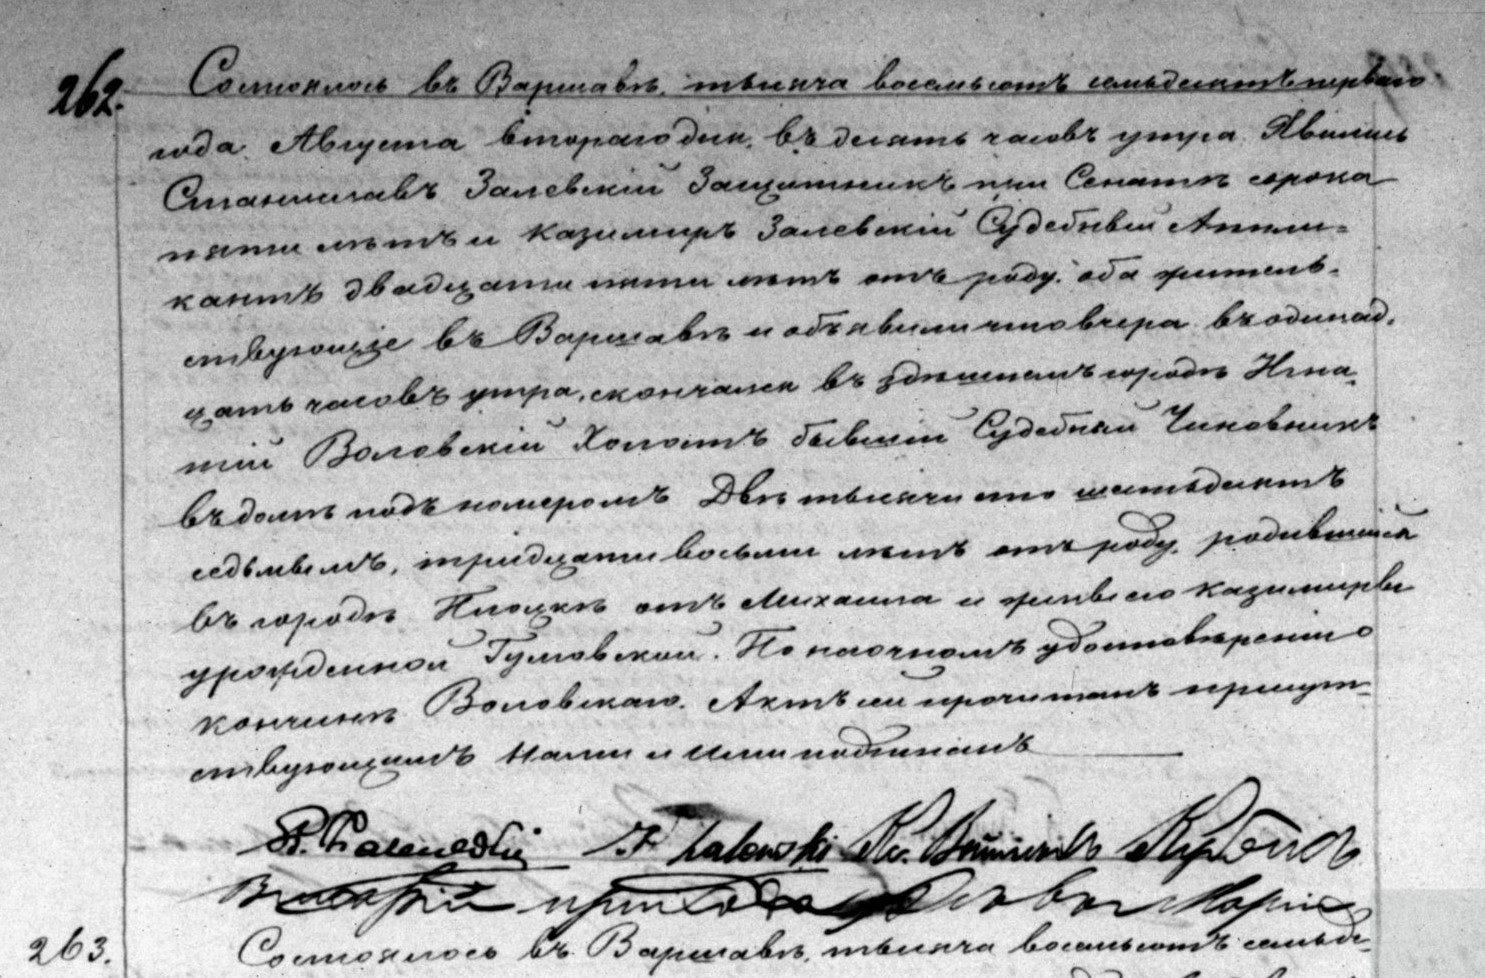 262.
Состоялось въ Варшавѣ, тысяча восемьсотъ семьдесятъ перваго
года, Августа втораго дня, въ десять часовъ утра. Явились
Станиславъ Залевскій Защитникъ при Сенатѣ сорока
пяти лѣтъ и Казимиръ Залевскій Судебный Аппли=
кантъ двадцати пяти лѣтъ отъ роду, оба житель-
ствующіе въ Варшавѣ и объявили что вчера въ одинад-
цать часовъ утра, скончался въ здѣшнемъ городѣ Игна-
тій Воловскій Холостъ бывшій Судебный Чиновникъ
въ домѣ подъ номеромъ Двѣ тысячи сто шестьдесятъ
седьмымъ, тридцати восьми лѣтъ отъ роду, родившійся
въ городѣ Плоцкѣ отъ Михаила и жены его Казимиры
урожденной Гумовской. По наочномъ удостовѣреніи о
кончинѣ Воловскаго. Актъ сей прочитанъ присут-
ствующимъ Нами и Ими подписанъ
Zalewski
прихода
263.
Состоялось въ Варшавѣ, тысяча восемьсотъ семьде-